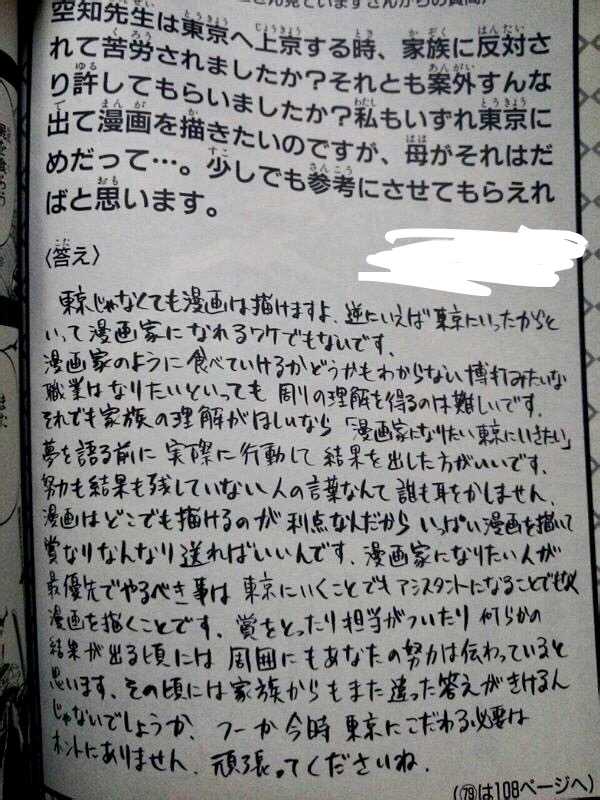 見ていますさんからの質問)
空知先生は東京へ上京する時、家族に反対さ
れて苦労されましたか?それとも案外すんな
り許してもらいましたか?私もいずれ東京に
出て漫画を描きたいのですが、母がそれはだ
めだって…。少しでも参考にさせてもらえれ
ばと思います。
〈答え〉
東京じゃなくても漫画は描けますよ、逆にいえば東京にいったからと
いって漫画家になれるワケでもないです。
漫画家のように食べていけるかどうかもわからない博打みたいな
職業はなりたいといっても周りの理解を得るのは難しいです。
それでも家族の理解がほしいなら「漫画家になりたい東京にいきたい」
夢を語る前に実際に行動して結果を出した方がいいです。
努力も結果も残していない人の言葉なんて誰も耳をかしません。
漫画はどこでも描けるのが利点なんだからいっぱい漫画を描いて
賞なりなんなり送ればいいんです、漫画家になりたい人が
最優先でやるべき事は東京にいくことでもアシスタントになることでもなく
漫画を描くことです。賞をとったり担当がついたり何らかの
結果が出る頃には周囲にもあなたの努力は伝わっていると
思います、その頃には家族からもまた違った答えがきけるん
じゃないでしょうか、つーか今時東京にこだわる必要は
ホントにありません、頑張ってくださいね。
(79は108ページへ)